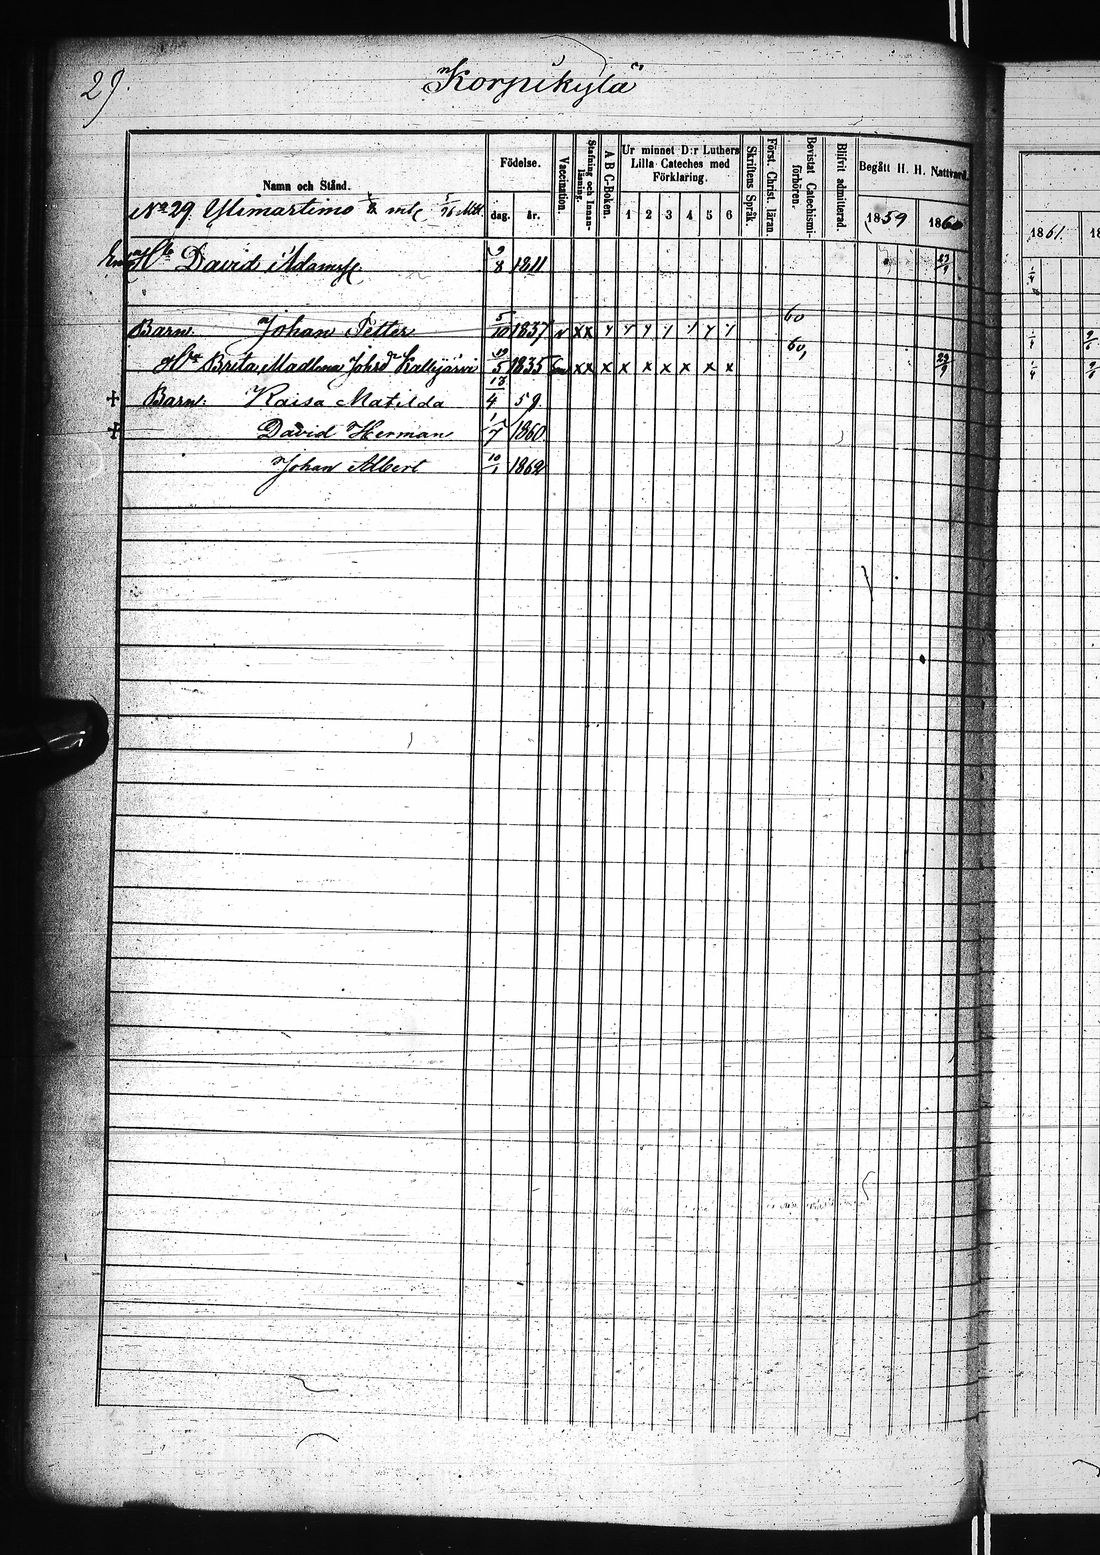 29.
Korpikylä
Namn och Stånd.
Födelse.
dag. år.
Vaccination.
Stafning och Innanläsning.
A B C-Boken.
Ur minnet D:r Luthers Lilla Cateches med Förklaring.
1 2 3 4 5 6
Skriftens Språk.
Först. Christ. läran
Bevistat Catechismiförhören.
Blifvit admitterad.
Begått H. H. Nattvard.
1859 1860
1861
No 29. Ylimartimo
David Adamss 9/8 1811
60
Barn. Johan Petter 5/10 1837 v x x
60,
Brita Madlena Johsd Kallijärvi 1835 x x x x x x x x x
+ Barn. Kaisa Matilda 18/4 59
+ David Herman 1/7 1860
Johan Albert 10/1 1862